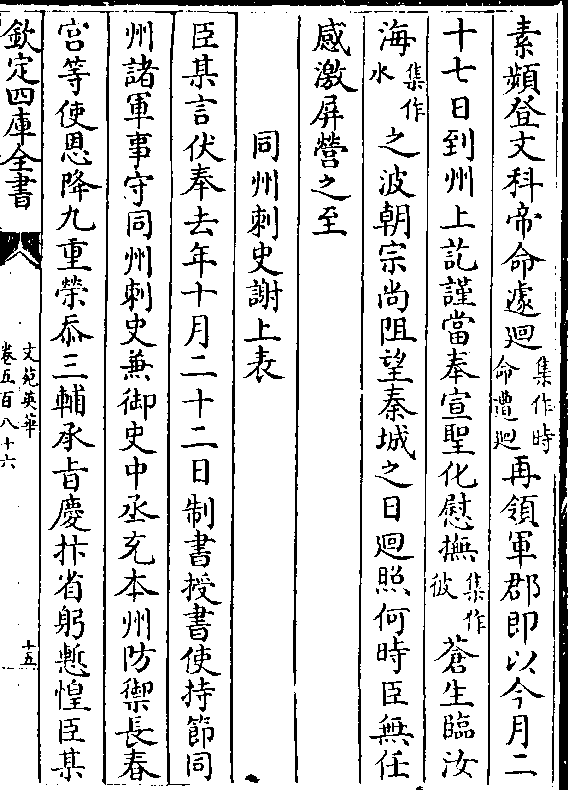 素頻登文科帝命遽迴集作時命遭迴再領軍郡即以今月二
十七日到州上訖謹當奉宣聖化慰撫集作彼蒼生臨汝
海集作水之波朝宗尚阻望秦城之日迴照何時臣無任
感激屏營之至
同州刺史謝上表
臣某言伏奉去年十月二十二日制書授書使持節同
州諸軍事守同州刺史兼御史中丞充本州防禦長春
宫等使恩降九重榮忝三輔承㫖慶抃省躬慙惶臣某
欽定四庫全書
文苑英華
卷五百八十六
十五